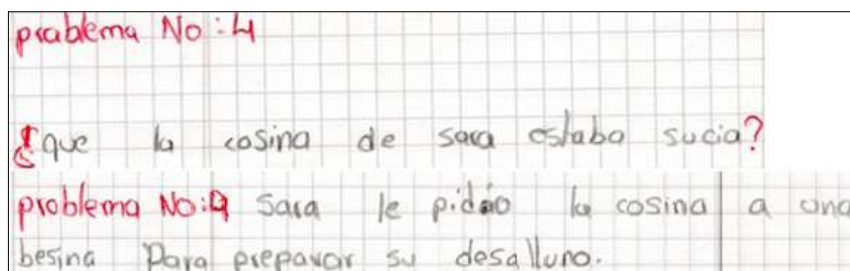 problema No:4
¿que la cosina de sara estaba sucia?
problema No:4 Sara le pidio la cosina a una
besina Para preparar su desalluno.